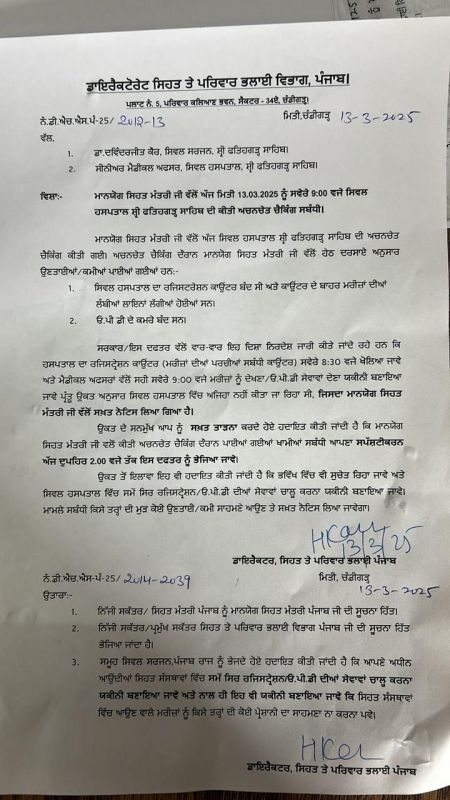 ਡਾਇਰੈਕਟੋਰੇਟ ਸਿਹਤ ਤੇ ਪਰਿਵਾਰ ਭਲਾਈ ਵਿਭਾਗ, ਪੰਜਾਬ।
ਪਲਾਟ ਨੰ. 5, ਪਰਿਵਾਰ ਕਲਿਆਣ ਭਵਨ, ਸੈਕਟਰ - 34ਏ, ਚੰਡੀਗੜ੍ਹ।
ਨੰ.ਡੀ.ਐਚ.ਐਸ.ਪੰ-25/ 2012-13 ਮਿਤੀ,ਚੰਡੀਗੜ੍ਹ 13-3-2025
ਵੱਲ,
1. ਡਾ.ਦਵਿੰਦਰਜੀਤ ਕੌਰ, ਸਿਵਲ ਸਰਜਨ, ਸ਼੍ਰੀ ਫਤਿਹਗੜ੍ਹ ਸਾਹਿਬ।
2. ਸੀਨੀਅਰ ਮੈਡੀਕਲ ਅਫਸਰ, ਸਿਵਲ ਹਸਪਤਾਲ, ਸ਼੍ਰੀ ਫਤਿਹਗੜ੍ਹ ਸਾਹਿਬ।
ਵਿਸ਼ਾ:- ਮਾਨਯੋਗ ਸਿਹਤ ਮੰਤਰੀ ਜੀ ਵੱਲੋਂ ਅੱਜ ਮਿਤੀ 13.03.2025 ਨੂੰ ਸਵੇਰੇ 9:00 ਵਜੇ ਸਿਵਲ
ਹਸਪਤਾਲ ਸ਼੍ਰੀ ਫਤਿਹਗੜ੍ਹ ਸਾਹਿਬ ਦੀ ਕੀਤੀ ਅਚਨਚੇਤ ਚੈਕਿੰਗ ਸਬੰਧੀ।
ਮਾਨਯੋਗ ਸਿਹਤ ਮੰਤਰੀ ਜੀ ਵੱਲੋਂ ਅੱਜ ਸਿਵਲ ਹਸਪਤਾਲ ਸ਼੍ਰੀ ਫਤਿਹਗੜ੍ਹ ਸਾਹਿਬ ਦੀ ਅਚਨਚੇਤ
ਚੈਕਿੰਗ ਕੀਤੀ ਗਈ। ਅਚਨਚੇਤ ਚੈਕਿੰਗ ਦੌਰਾਨ ਮਾਨਯੋਗ ਸਿਹਤ ਮੰਤਰੀ ਜੀ ਵੱਲੋਂ ਹੇਠ ਦਰਸਾਏ ਅਨੁਸਾਰ
ਉਣਤਾਈਆਂ/ਕਮੀਆਂ ਪਾਈਆਂ ਗਈਆਂ ਹਨ:-
1. ਸਿਵਲ ਹਸਪਤਾਲ ਦਾ ਰਜਿਸਟਰੇਸ਼ਨ ਕਾਊਂਟਰ ਬੰਦ ਸੀ ਅਤੇ ਕਾਊਂਟਰ ਦੇ ਬਾਹਰ ਮਰੀਜਾਂ ਦੀਆਂ
ਲੰਬੀਆਂ ਲਾਇਨਾਂ ਲੱਗੀਆਂ ਹੋਈਆਂ ਸਨ।
2. ਓ.ਪੀ ਡੀ ਦੇ ਕਮਰੇ ਬੰਦ ਸਨ।
ਸਰਕਾਰ/ਇਸ ਦਫਤਰ ਵੱਲੋਂ ਵਾਰ-ਵਾਰ ਇਹ ਦਿਸ਼ਾ ਨਿਰਦੇਸ਼ ਜਾਰੀ ਕੀਤੇ ਜਾਂਦੇ ਰਹੇ ਹਨ ਕਿ
ਹਸਪਤਾਲ ਦਾ ਰਜਿਸਟ੍ਰੇਸ਼ਨ ਕਾਊਂਟਰ (ਮਰੀਜਾਂ ਦੀਆਂ ਪਰਚੀਆਂ ਸਬੰਧੀ ਕਾਊਂਟਰ) ਸਵੇਰੇ 8:30 ਵਜੇ ਖੋਲਿਆ ਜਾਵੇ
ਅਤੇ ਮੈਡੀਕਲ ਅਫਸਰਾਂ ਵੱਲੋਂ ਸਹੀ ਸਵੇਰੇ 9:00 ਵਜੇ ਮਰੀਜਾਂ ਨੂੰ ਦੇਖਣਾ/ਓ.ਪੀ.ਡੀ ਸੇਵਾਵਾਂ ਦੇਣਾ ਯਕੀਨੀ ਬਣਾਇਆ
ਜਾਵੇ ਪ੍ਰੰਤੂ ਉਕਤ ਅਨੁਸਾਰ ਸਿਵਲ ਹਸਪਤਾਲ ਵਿੱਚ ਅਜਿਹਾ ਨਹੀਂ ਕੀਤਾ ਜਾ ਰਿਹਾ ਸੀ, ਜਿਸਦਾ ਮਾਨਯੋਗ ਸਿਹਤ
ਮੰਤਰੀ ਜੀ ਵੱਲੋਂ ਸਖ਼ਤ ਨੋਟਿਸ ਲਿਆ ਗਿਆ ਹੈ।
ਉਕਤ ਦੇ ਸਨਮੁੱਖ ਆਪ ਨੂੰ ਸਖ਼ਤ ਤਾੜਨਾ ਕਰਦੇ ਹੋਏ ਹਦਾਇਤ ਕੀਤੀ ਜਾਂਦੀ ਹੈ ਕਿ ਮਾਨਯੋਗ
ਸਿਹਤ ਮੰਤਰੀ ਜੀ ਵਲੋਂ ਕੀਤੀ ਅਚਨਚੇਤ ਚੈਕਿੰਗ ਦੌਰਾਨ ਪਾਈਆਂ ਗਈਆਂ ਖਾਮੀਆਂ ਸਬੰਧੀ ਆਪਣਾ ਸਪੱਸ਼ਟੀਕਰਨ
ਅੱਜ ਦੁਪਹਿਰ 2.00 ਵਜੇ ਤੱਕ ਇਸ ਦਫਤਰ ਨੂੰ ਭੇਜਿਆ ਜਾਵੇ।
ਉਕਤ ਤੋਂ ਇਲਾਵਾ ਇਹ ਵੀ ਹਦਾਇਤ ਕੀਤੀ ਜਾਂਦੀ ਹੈ ਕਿ ਭਵਿੱਖ ਵਿੱਚ ਵੀ ਸੁਚੇਤ ਰਿਹਾ ਜਾਵੇ ਅਤੇ
ਸਿਵਲ ਹਸਪਤਾਲ ਵਿੱਚ ਸਮੇਂ ਸਿਰ ਰਜਿਸਟ੍ਰੇਸ਼ਨ/ਓ.ਪੀ.ਡੀ ਦੀਆਂ ਸੇਵਾਵਾਂ ਚਾਲੂ ਕਰਨਾ ਯਕੀਨੀ ਬਣਾਇਆ ਜਾਵੇ।
ਮਾਮਲੇ ਸਬੰਧੀ ਕਿਸੇ ਤਰ੍ਹਾਂ ਦੀ ਮੁੜ ਕੋਈ ਉਣਤਾਈ/ਕਮੀ ਸਾਹਮਣੇ ਆਉਣ ਤੇ ਸਖ਼ਤ ਨੋਟਿਸ ਲਿਆ ਜਾਵੇਗਾ।
13/3/25
ਡਾਇਰੈਕਟਰ, ਸਿਹਤ ਤੇ ਪਰਿਵਾਰ ਭਲਾਈ ਪੰਜਾਬ
ਨੰ.ਡੀ.ਐਚ.ਐਸ.ਪੰ-25/ 2014-2039 ਮਿਤੀ, ਚੰਡੀਗੜ੍ਹ
13-3-2025
ਉਤਾਰਾ:-
1. ਨਿੱਜੀ ਸਕੱਤਰ/ ਸਿਹਤ ਮੰਤਰੀ ਪੰਜਾਬ ਨੂੰ ਮਾਨਯੋਗ ਸਿਹਤ ਮੰਤਰੀ ਪੰਜਾਬ ਜੀ ਦੀ ਸੂਚਨਾ ਹਿੱਤ।
2. ਨਿੱਜੀ ਸਕੱਤਰ/ਪ੍ਰਮੁੱਖ ਸਕੱਤਰ ਸਿਹਤ ਤੇ ਪਰਿਵਾਰ ਭਲਾਈ ਵਿਭਾਗ ਪੰਜਾਬ ਜੀ ਦੀ ਸੂਚਨਾ ਹਿੱਤ
ਭੇਜਿਆ ਜਾਂਦਾ ਹੈ।
3. ਸਮੂਹ ਸਿਵਲ ਸਰਜਨ,ਪੰਜਾਬ ਰਾਜ ਨੂੰ ਭੇਜਦੇ ਹੋਏ ਹਦਾਇਤ ਕੀਤੀ ਜਾਂਦੀ ਹੈ ਕਿ ਆਪਣੇ ਅਧੀਨ
ਆਉਂਦੀਆਂ ਸਿਹਤ ਸੰਸਥਾਵਾਂ ਵਿੱਚ ਸਮੇਂ ਸਿਰ ਰਜਿਸਟ੍ਰੇਸ਼ਨ/ਓ.ਪੀ.ਡੀ ਦੀਆਂ ਸੇਵਾਵਾਂ ਚਾਲੂ ਕਰਨਾ
ਯਕੀਨੀ ਬਣਾਇਆ ਜਾਵੇ ਅਤੇ ਨਾਲ ਹੀ ਇਹ ਵੀ ਯਕੀਨੀ ਬਣਾਇਆ ਜਾਵੇ ਕਿ ਸਿਹਤ ਸੰਸਥਾਵਾਂ
ਵਿੱਚ ਆਉਣ ਵਾਲੇ ਮਰੀਜਾਂ ਨੂੰ ਕਿਸੇ ਤਰ੍ਹਾਂ ਦੀ ਕੋਈ ਪ੍ਰੇਸ਼ਾਨੀ ਦਾ ਸਾਹਮਣਾ ਨਾ ਕਰਨਾ ਪਵੇ।
ਡਾਇਰੈਕਟਰ, ਸਿਹਤ ਤੇ ਪਰਿਵਾਰ ਭਲਾਈ ਪੰਜਾਬ